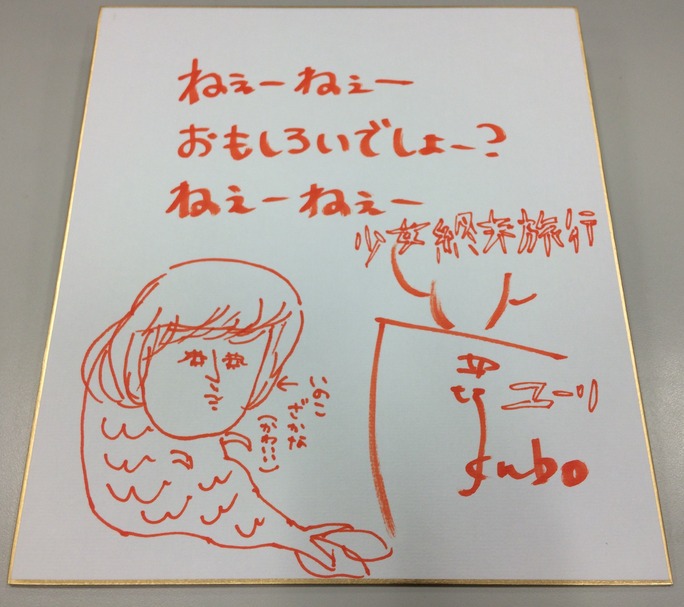 ねぇーねぇー
おもしろいでしょー?
ねぇーねぇー
少女終末旅行
いのこ
ざかな
(かわいい)
ユーリ